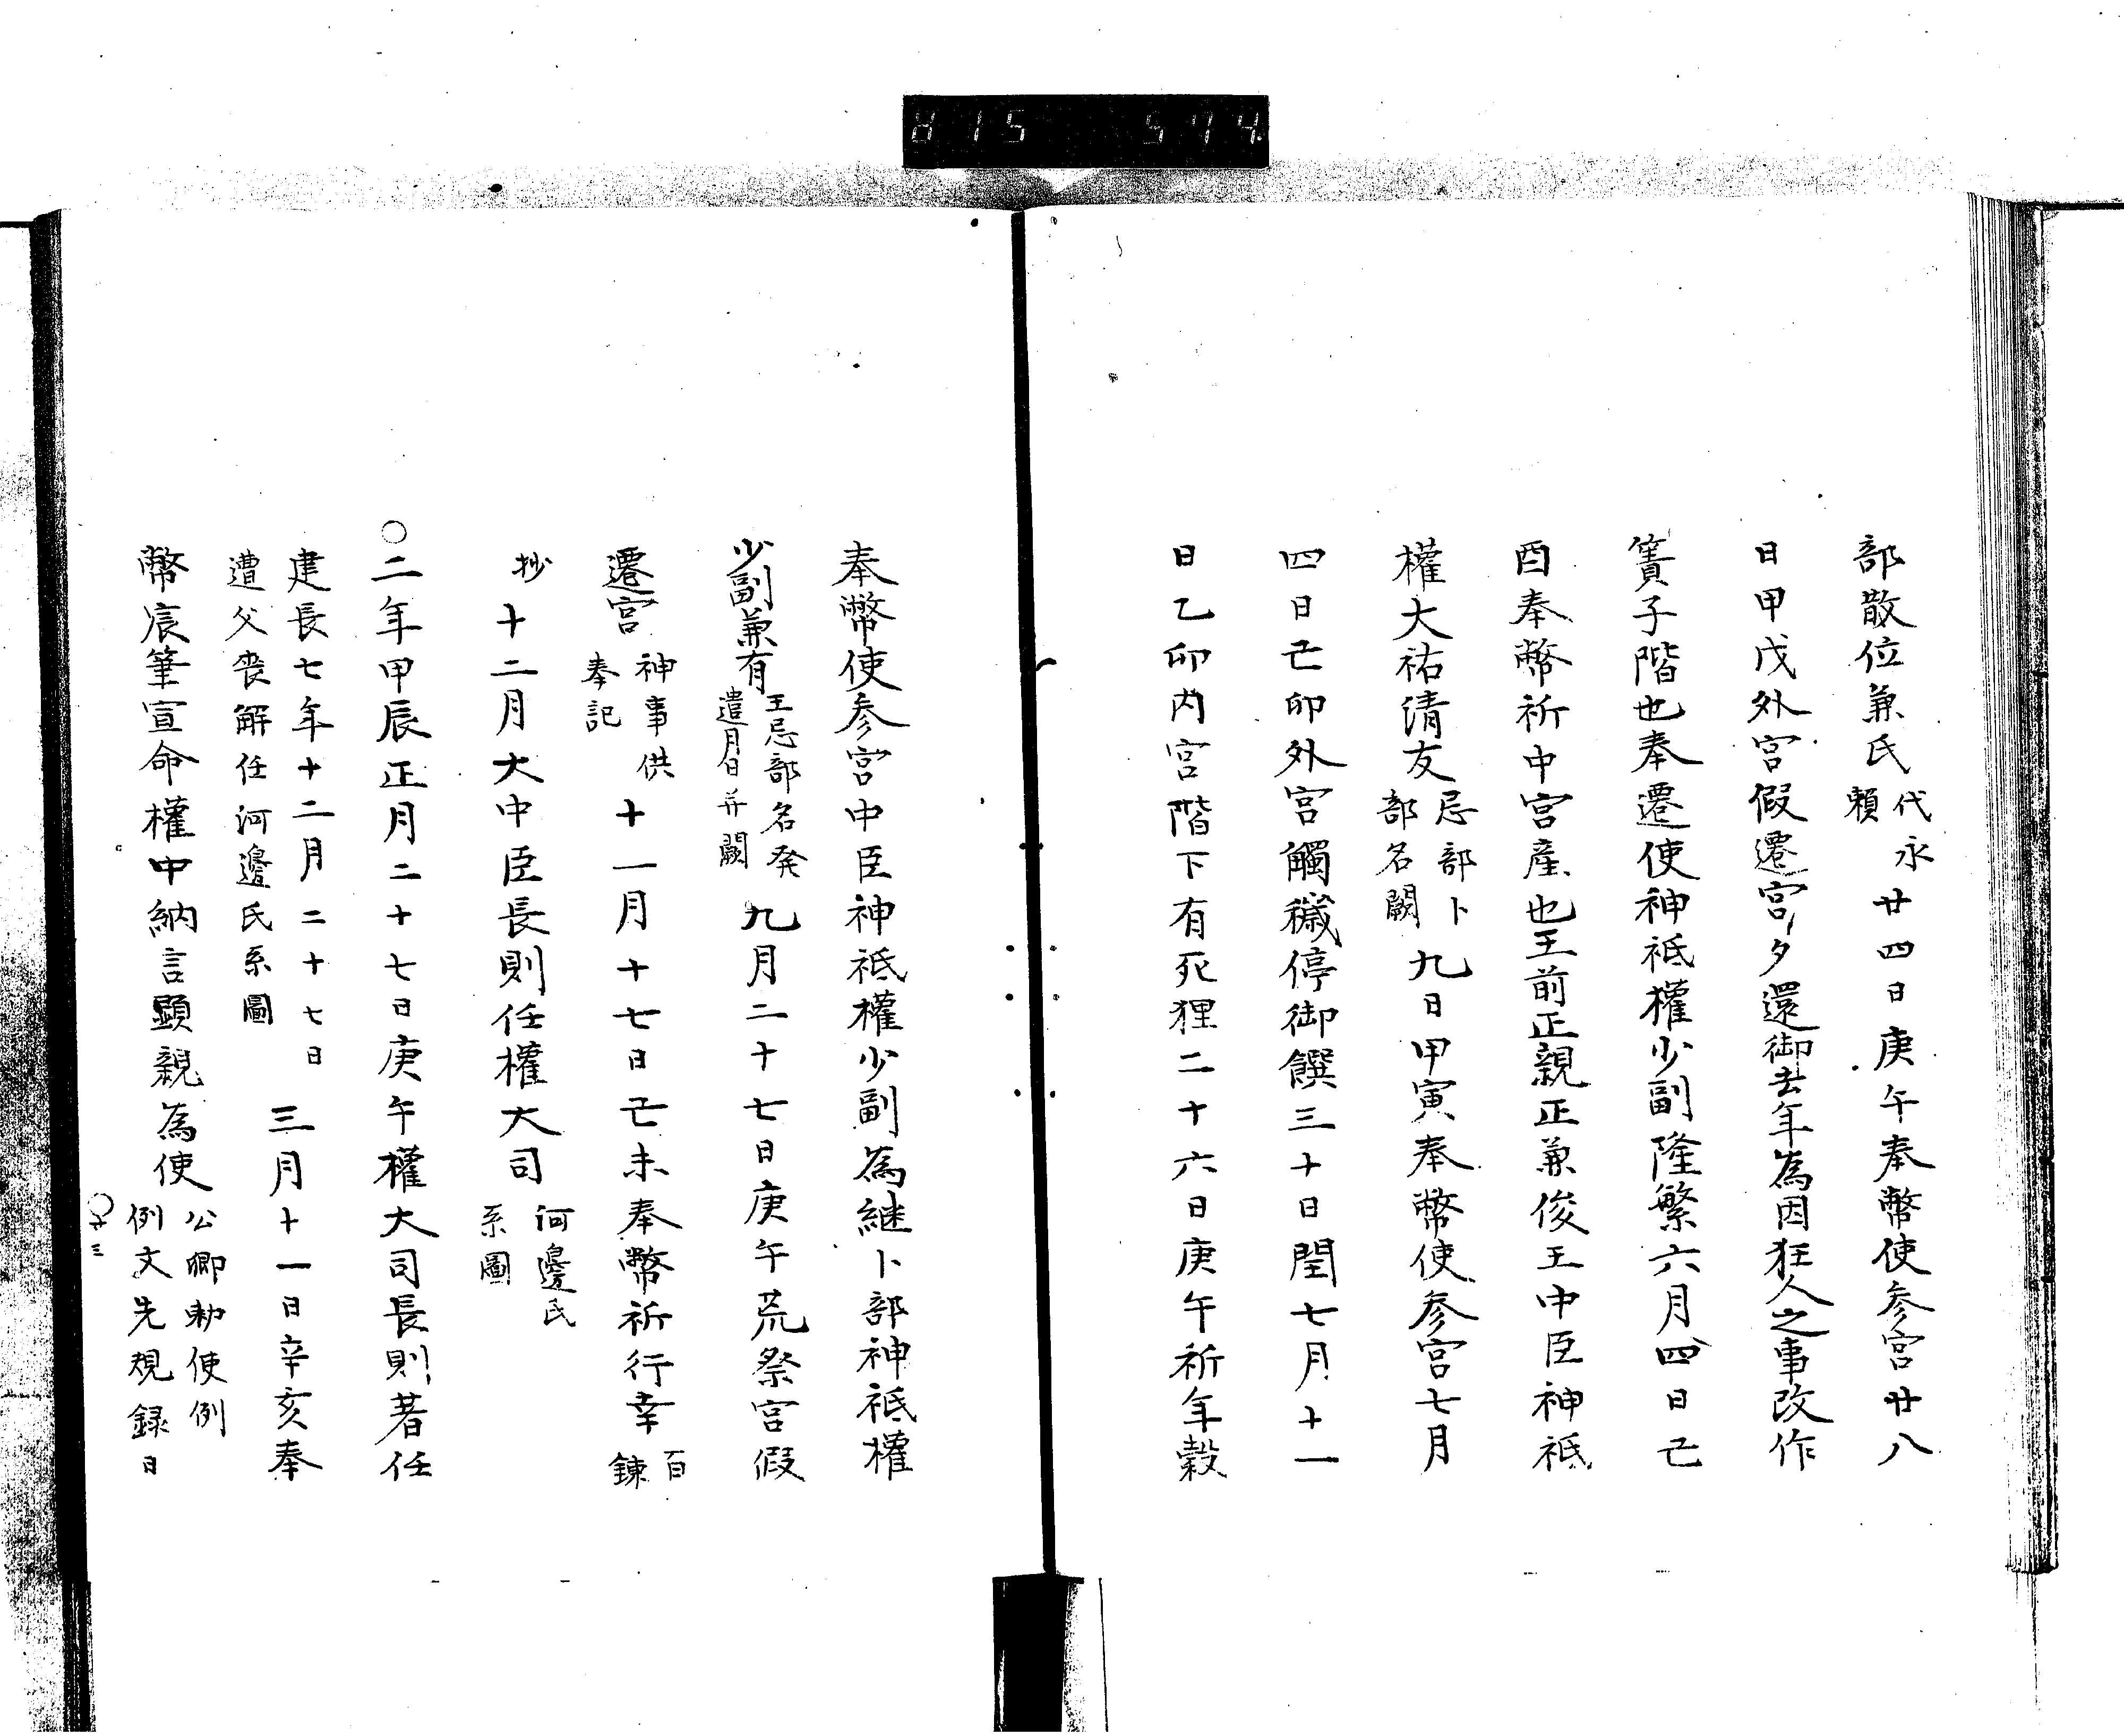 815 574
部散位兼氏代永頼廿四日庚午奉幣使参宮廿八
日甲戊外宮假遷宮夕還御去年為因狂人之事改作
簀子階也奉遷使神祇權少副隆繁六月四日己
酉奉幣祈中宮産也王前正親正兼俊王中臣神祇
權大祐清友忌部卜部名闕九日甲寅奉幣使参宮七月
四日己卯外宮觸穢停御饌三十日閏七月十一
日乙卯内宮階下有死狸二十六日庚午祈年穀
奉幣使参宮中臣神祇權少副為継卜部神祇權
少副兼有王忌部名発遣月日并闕九月二十七日庚午荒祭宮假
遷宮神事供奉記十一月十七日己未奉幣祈行幸百錬
抄十二月大中臣長則任權大司河邊氏系圖
○二年甲辰正月二十七日庚午權大司長則著任
建長七年十二月二十七日遭父喪解任河邊氏系圖三月十一日辛亥奉
幣宸筆宣命權中納言顯親為使公卿勅使例例文先規録日
○廿三